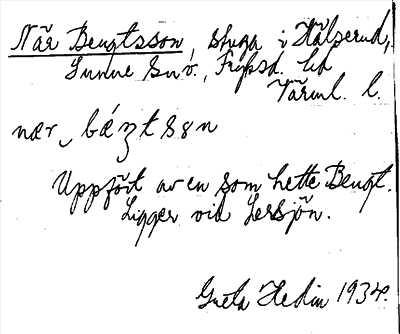 När Bengtsson, stuga i Hälserud,
Sunne sn o., Fryksd. hd
Värml. l.
nær ̮ báŋtsøn
Uppfört av en som hette Bengt.
Ligger vid Lersjön.
Greta Hedin 1934.